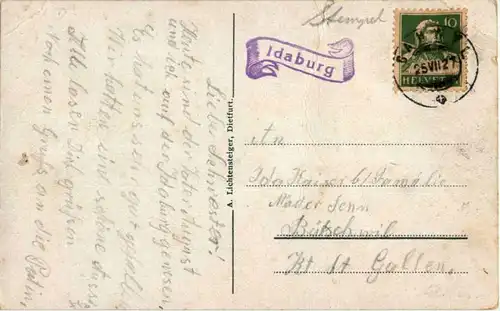 Stempel
Idaburg
10
25 VII 27
HELVETIA
A. Lichtensteiger, Dietfurt.
Liebe Schwester!
Heute sind der Vater August
und ich auf der Idaburg gewesen,
Es hat uns sehr gut gefallt.
Wir hatten eine schöne Auss
Alle lasen Dich grüßen
Noch einen Gruss an die Patin,
An
Ida Kaiser b/Familie
Mader Senn
Bütschwil
Kt. St. Gallen.